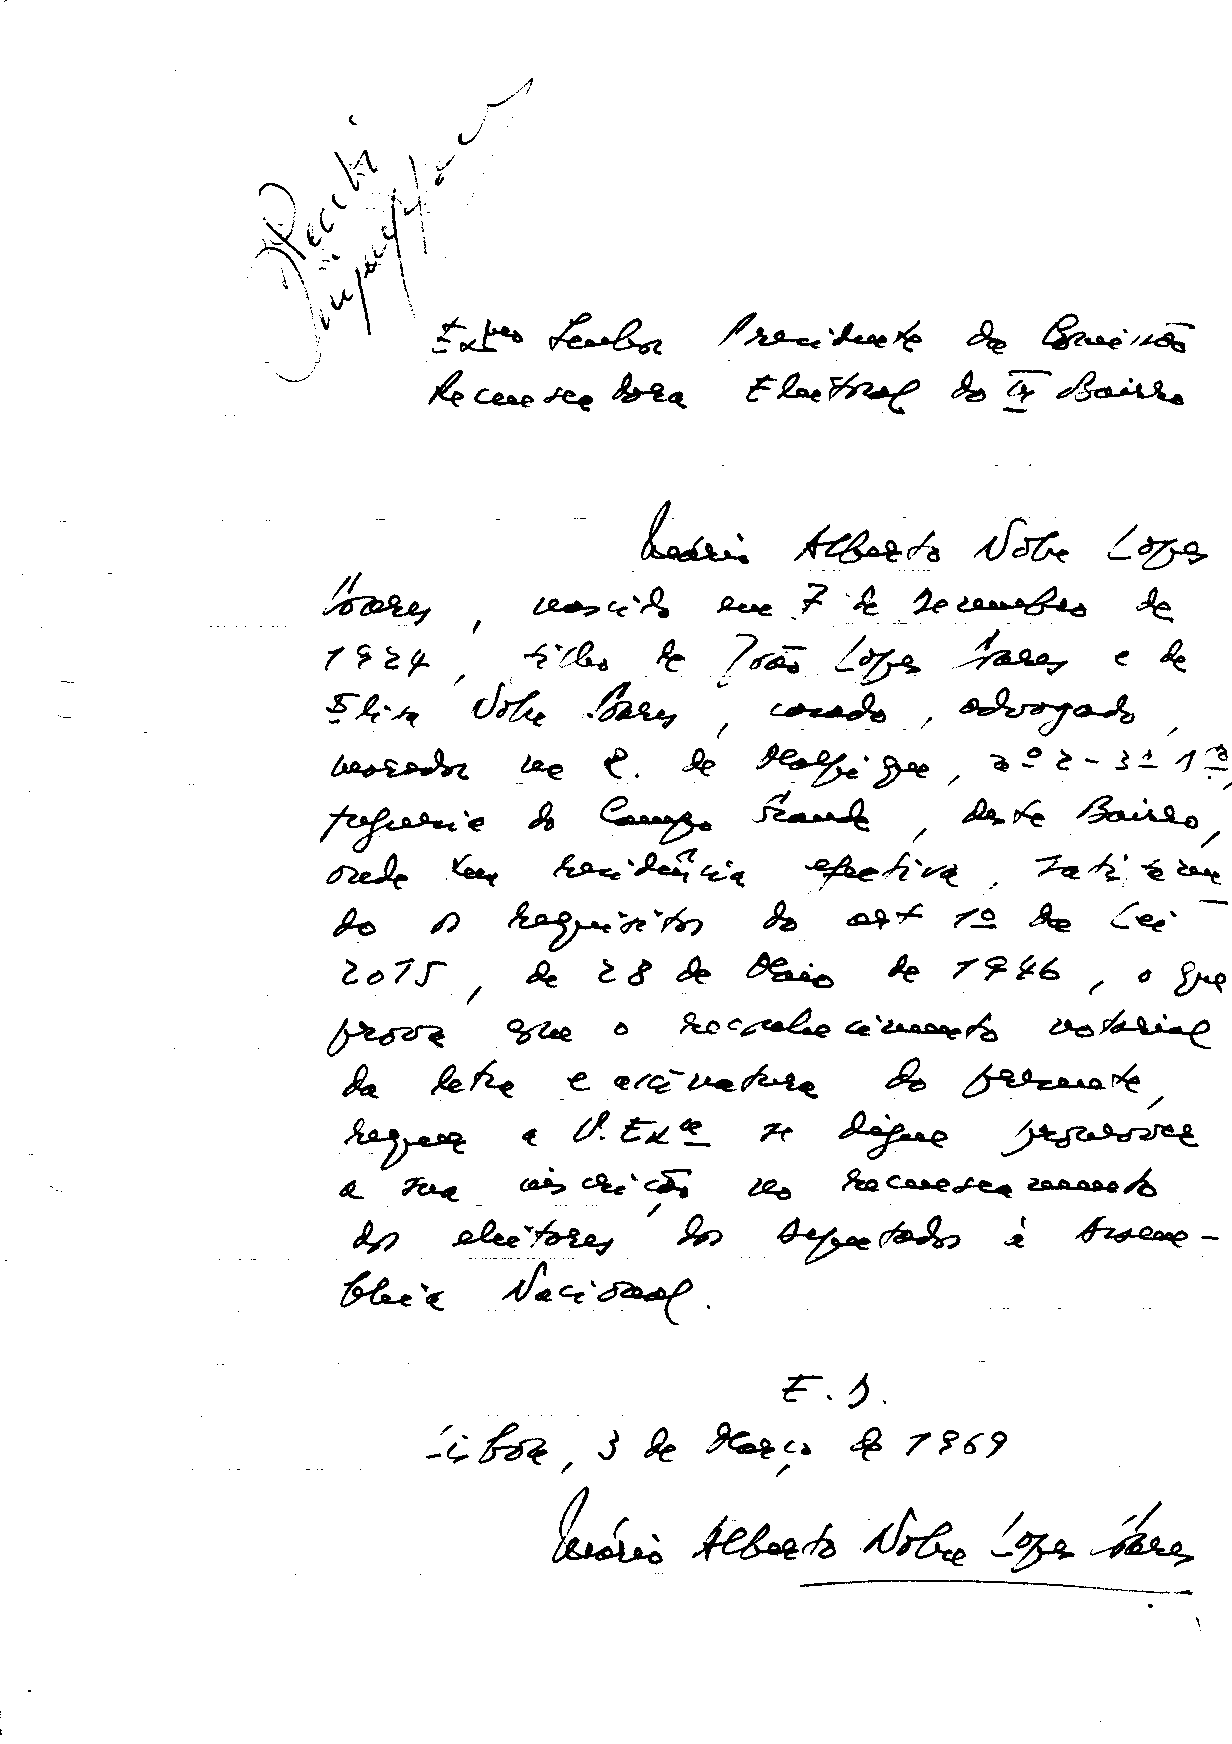 Recebi
Exmo Senhor Presidente da Comissão
Recenseadora Eleitoral do Bairro
Mário Alberto Nobre Lopes
Soares, nascido em 7 de Dezembro de
1924, filho de João Lopes Soares e de
Elisa Nobre Soares, casado, advogado,
morador na R. de Malpique, nº 2-3º 1º,
freguesia do Campo Grande, deste Bairro,
onde tem residência efectiva, satisfazen
do os requisitos do art 1º da Lei
2015, de 28 de Maio de 1946, o que
prova que o reconhecimento notarial
da letra e assinatura do presente,
requer a V. Exª se digne promover
a sua inscrição no recenseamento
dos eleitores dos deputados à Assem-
bleia Nacional.
E. D.
Lisboa, 3 de Março de 1969
Mário Alberto Nobre Lopes Soares